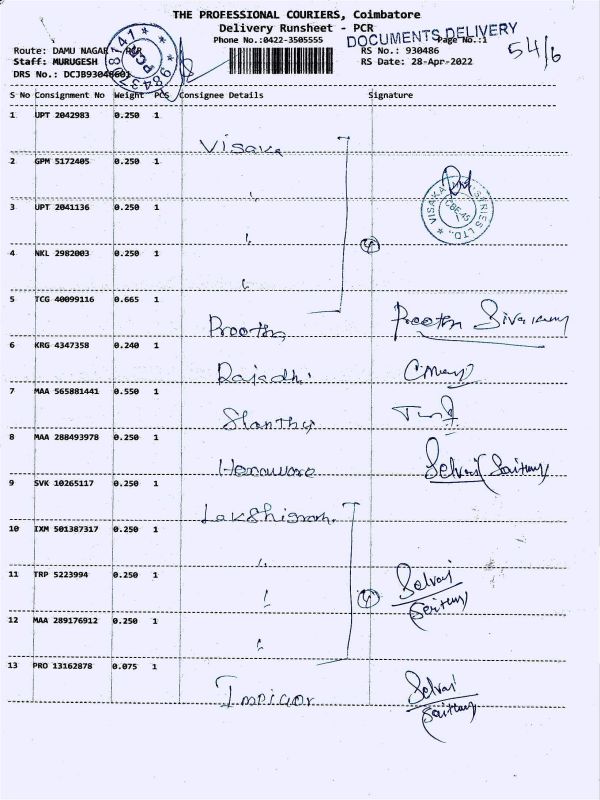 THE PROFESSIONAL COURIERS, Coimbatore
Delivery Runsheet - PCR
Phone No.:0422-3505555
DOCUMENTS DELIVERY
Page No.:1
54/6
Route: DAMU NAGAR - PCR
RS No.: 930486
Staff: MURUGESH
RS Date: 28-Apr-2022
DRS No.: DCJB93048601
S No Consignment No Weight PCS Consignee Details Signature
1 UPT 2042983 0.250 1
Visaka
2 GPM 5172405 0.250 1
3 UPT 2041136 0.250 1
VISAKA INDUSTRIES LTD.,
CBE-45
4
4 NKL 2982003 0.250 1
5 TCG 40099116 0.665 1
Preetha
6 KRG 4347358 0.240 1
7 MAA 565881441 0.550 1
Shanthy
8 MAA 288493978 0.250 1
Selvasi
9 SVK 10265117 0.250 1
10 IXM 501387317 0.250 1
11 TRP 5223994 0.250 1
4
Selvasi
12 MAA 289176912 0.250 1
13 PRO 13162878 0.075 1
Selvasi